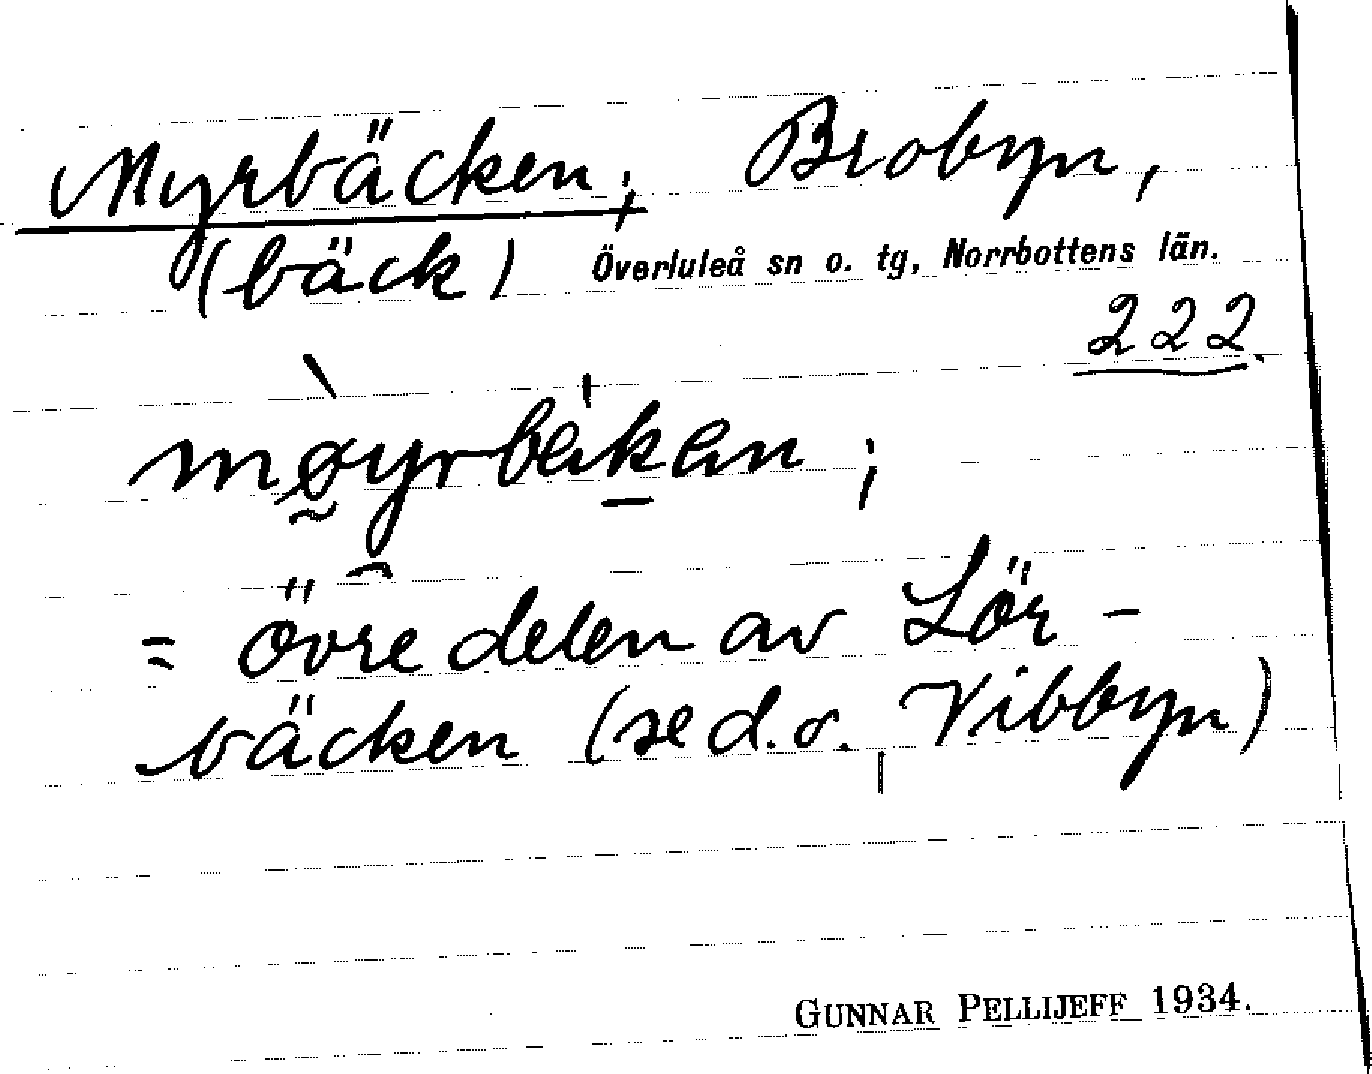 Myrbäcken; Brobyn,
(bäck) Överluleå sn o. tg, Norrbottens län.
222.
= övre delen av Lör-
bäcken (se d.o. Vibbyn)
GUNNAR PELLIJEFF 1934.